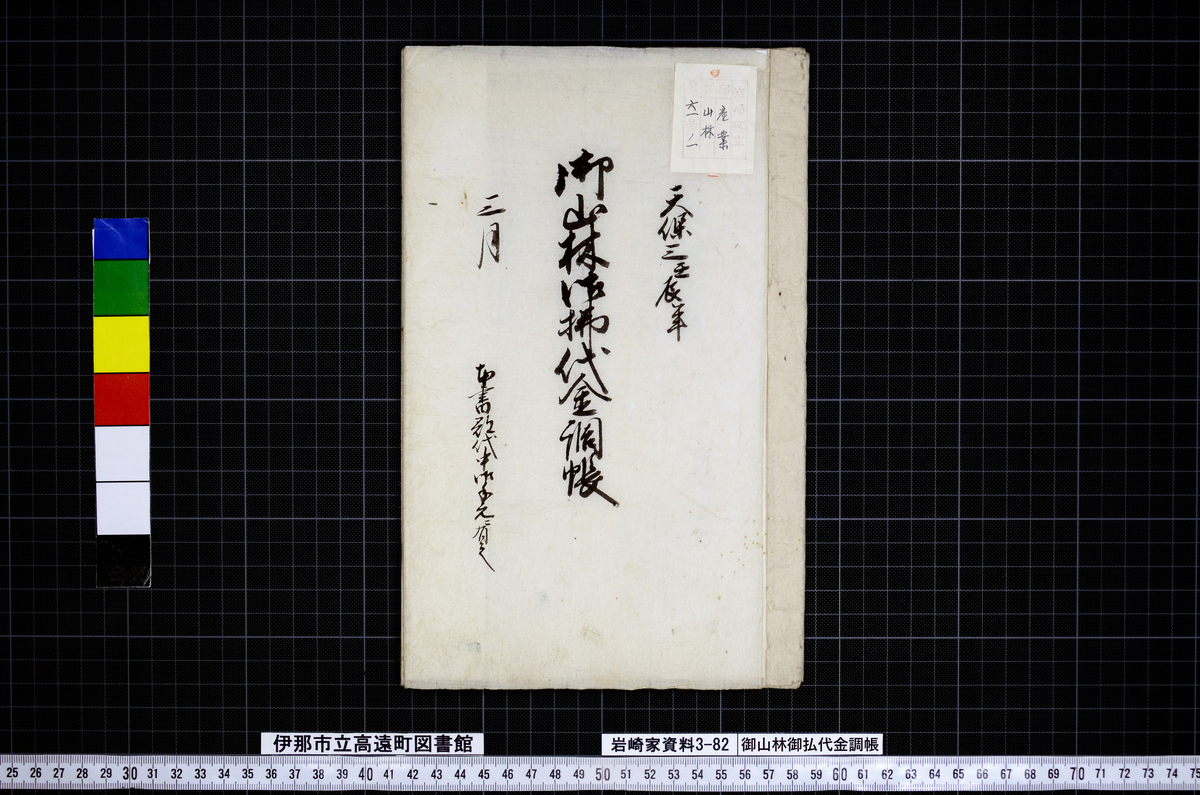 産業
山林
六一ノ一
天保三壬辰年
御山林御拂代金調帳
三月
伊那市立高遠町図書館
岩崎家資料3-82
御山林御払代金調帳
25 26 27 28 29 30 31 32 33 34 35 36 37 38 39 40 41 42 43 44 45 46 47 48 49 50 51 52 53 54 55 56 57 58 59 60 61 62 63 64 65 66 67 68 69 70 71 72 73 74 75